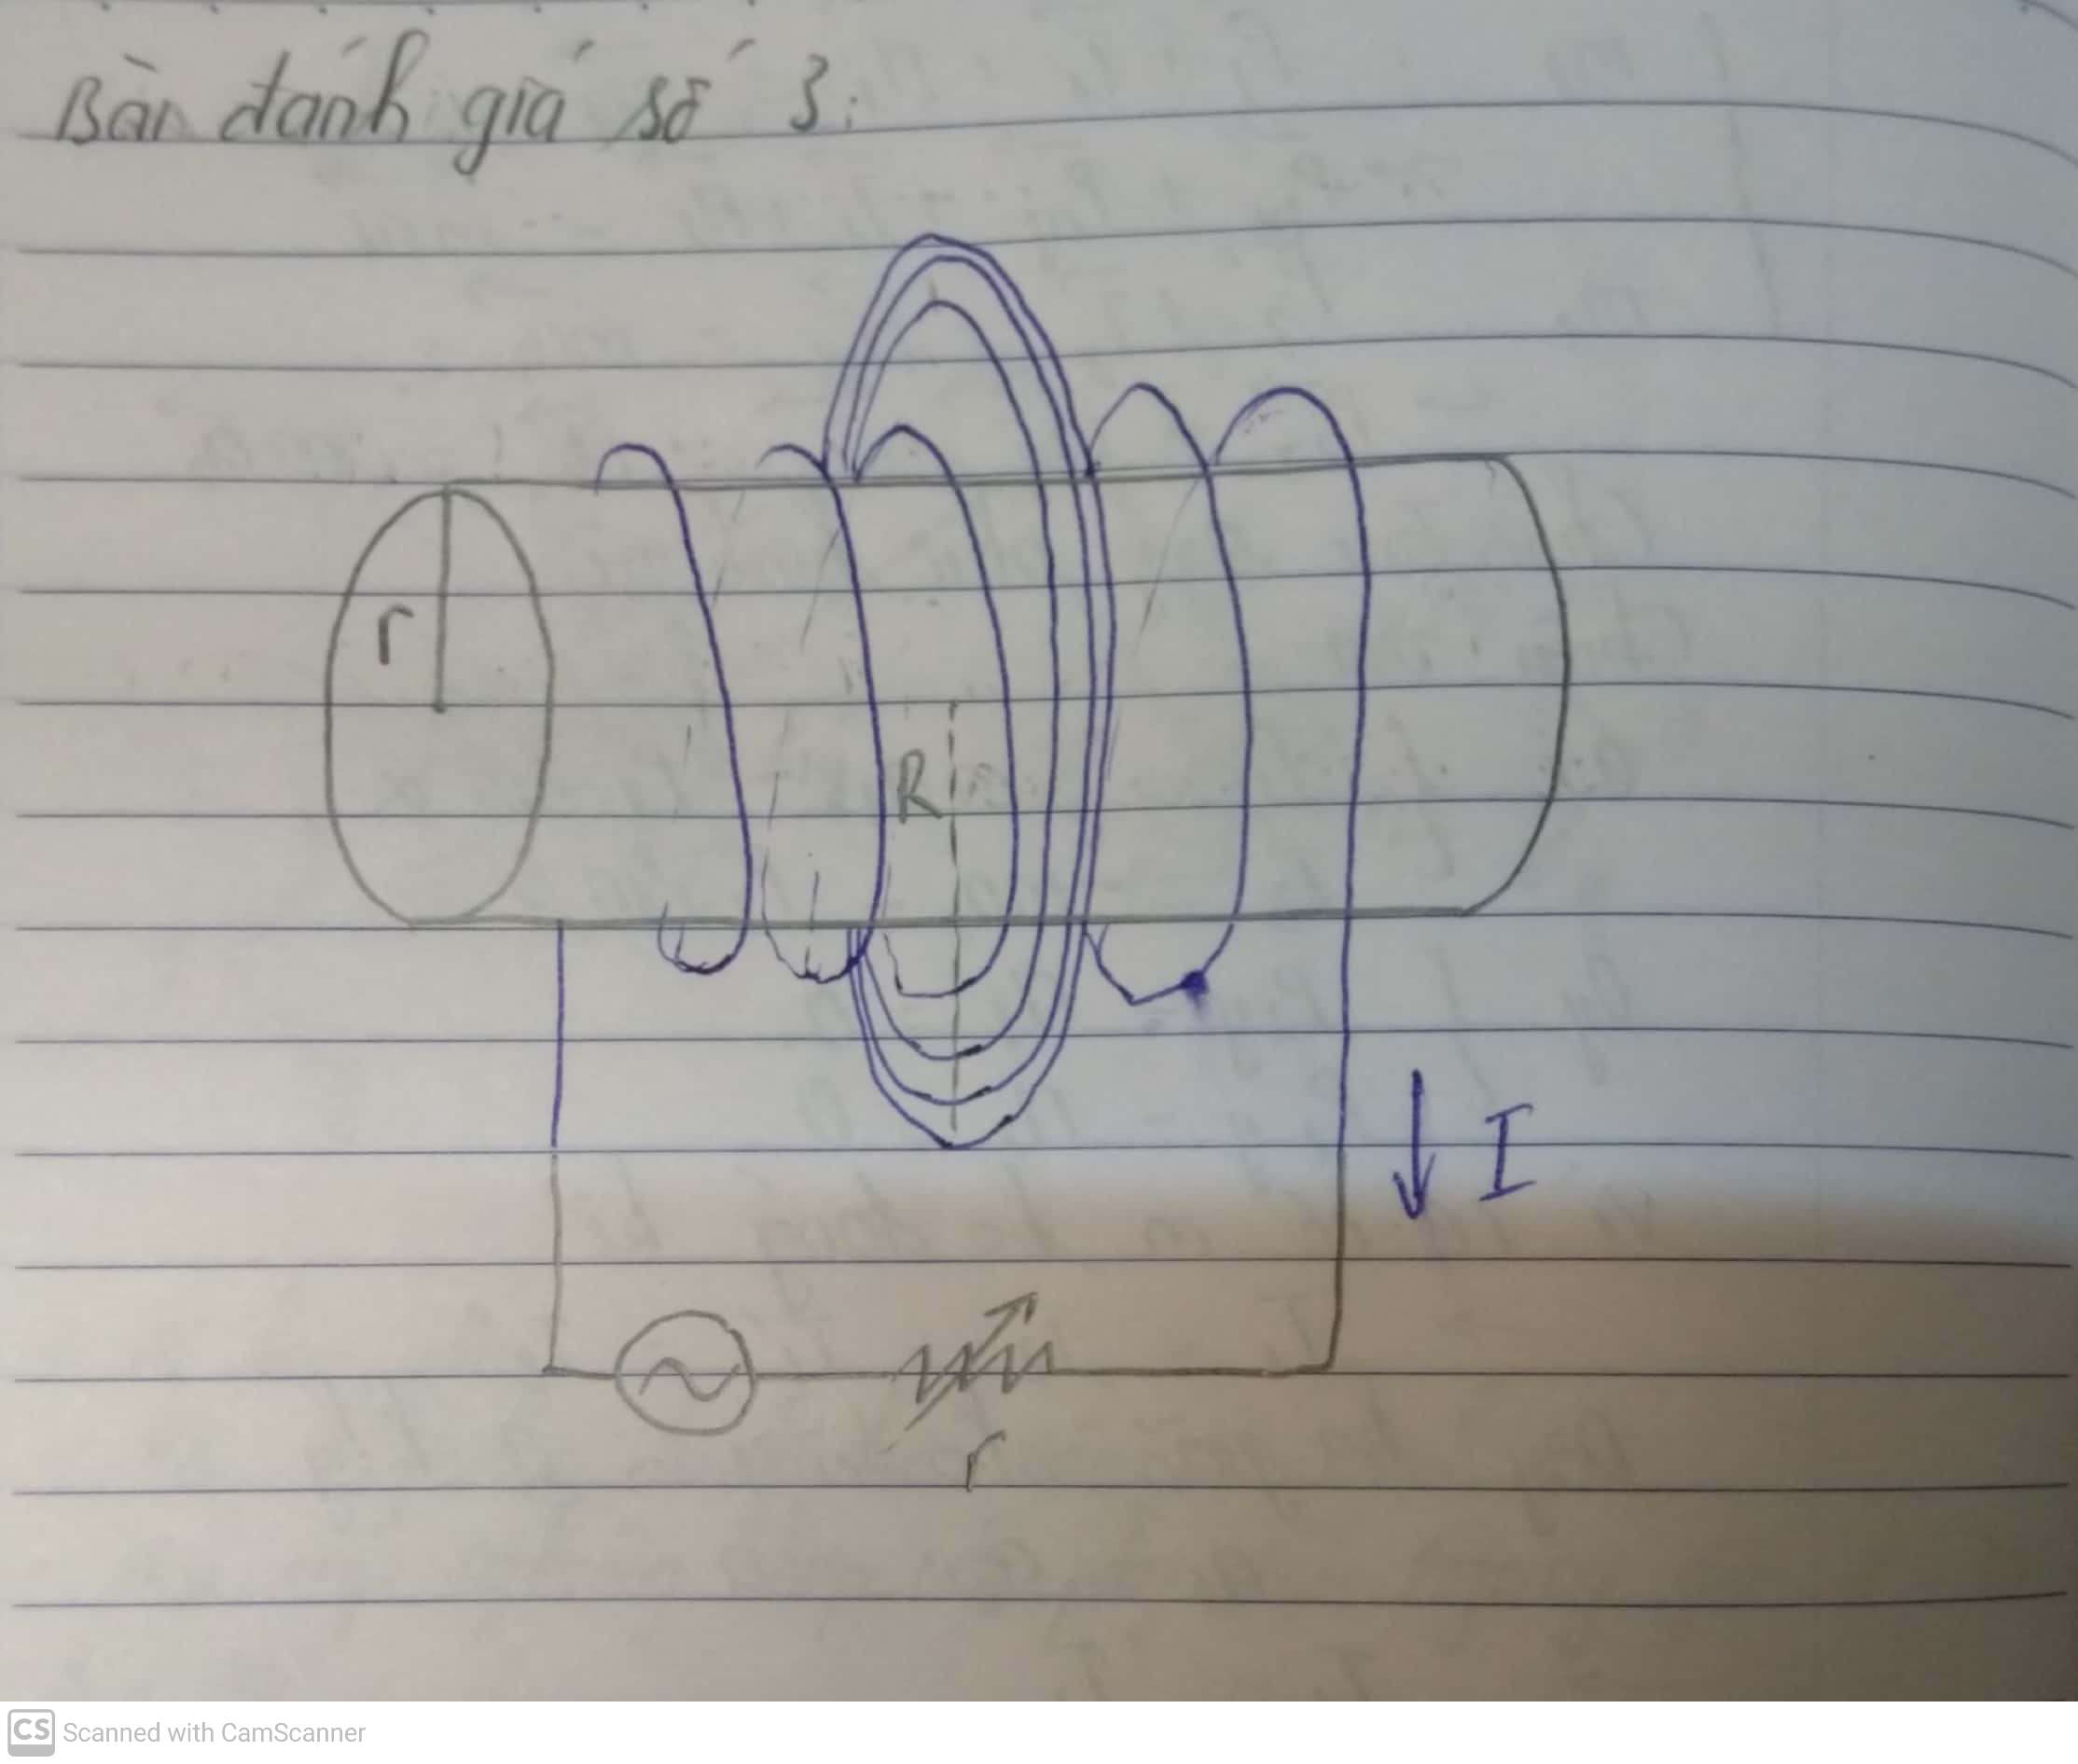 Bàn đánh giá số 3:
r
R
I
r
CS Scanned with CamScanner